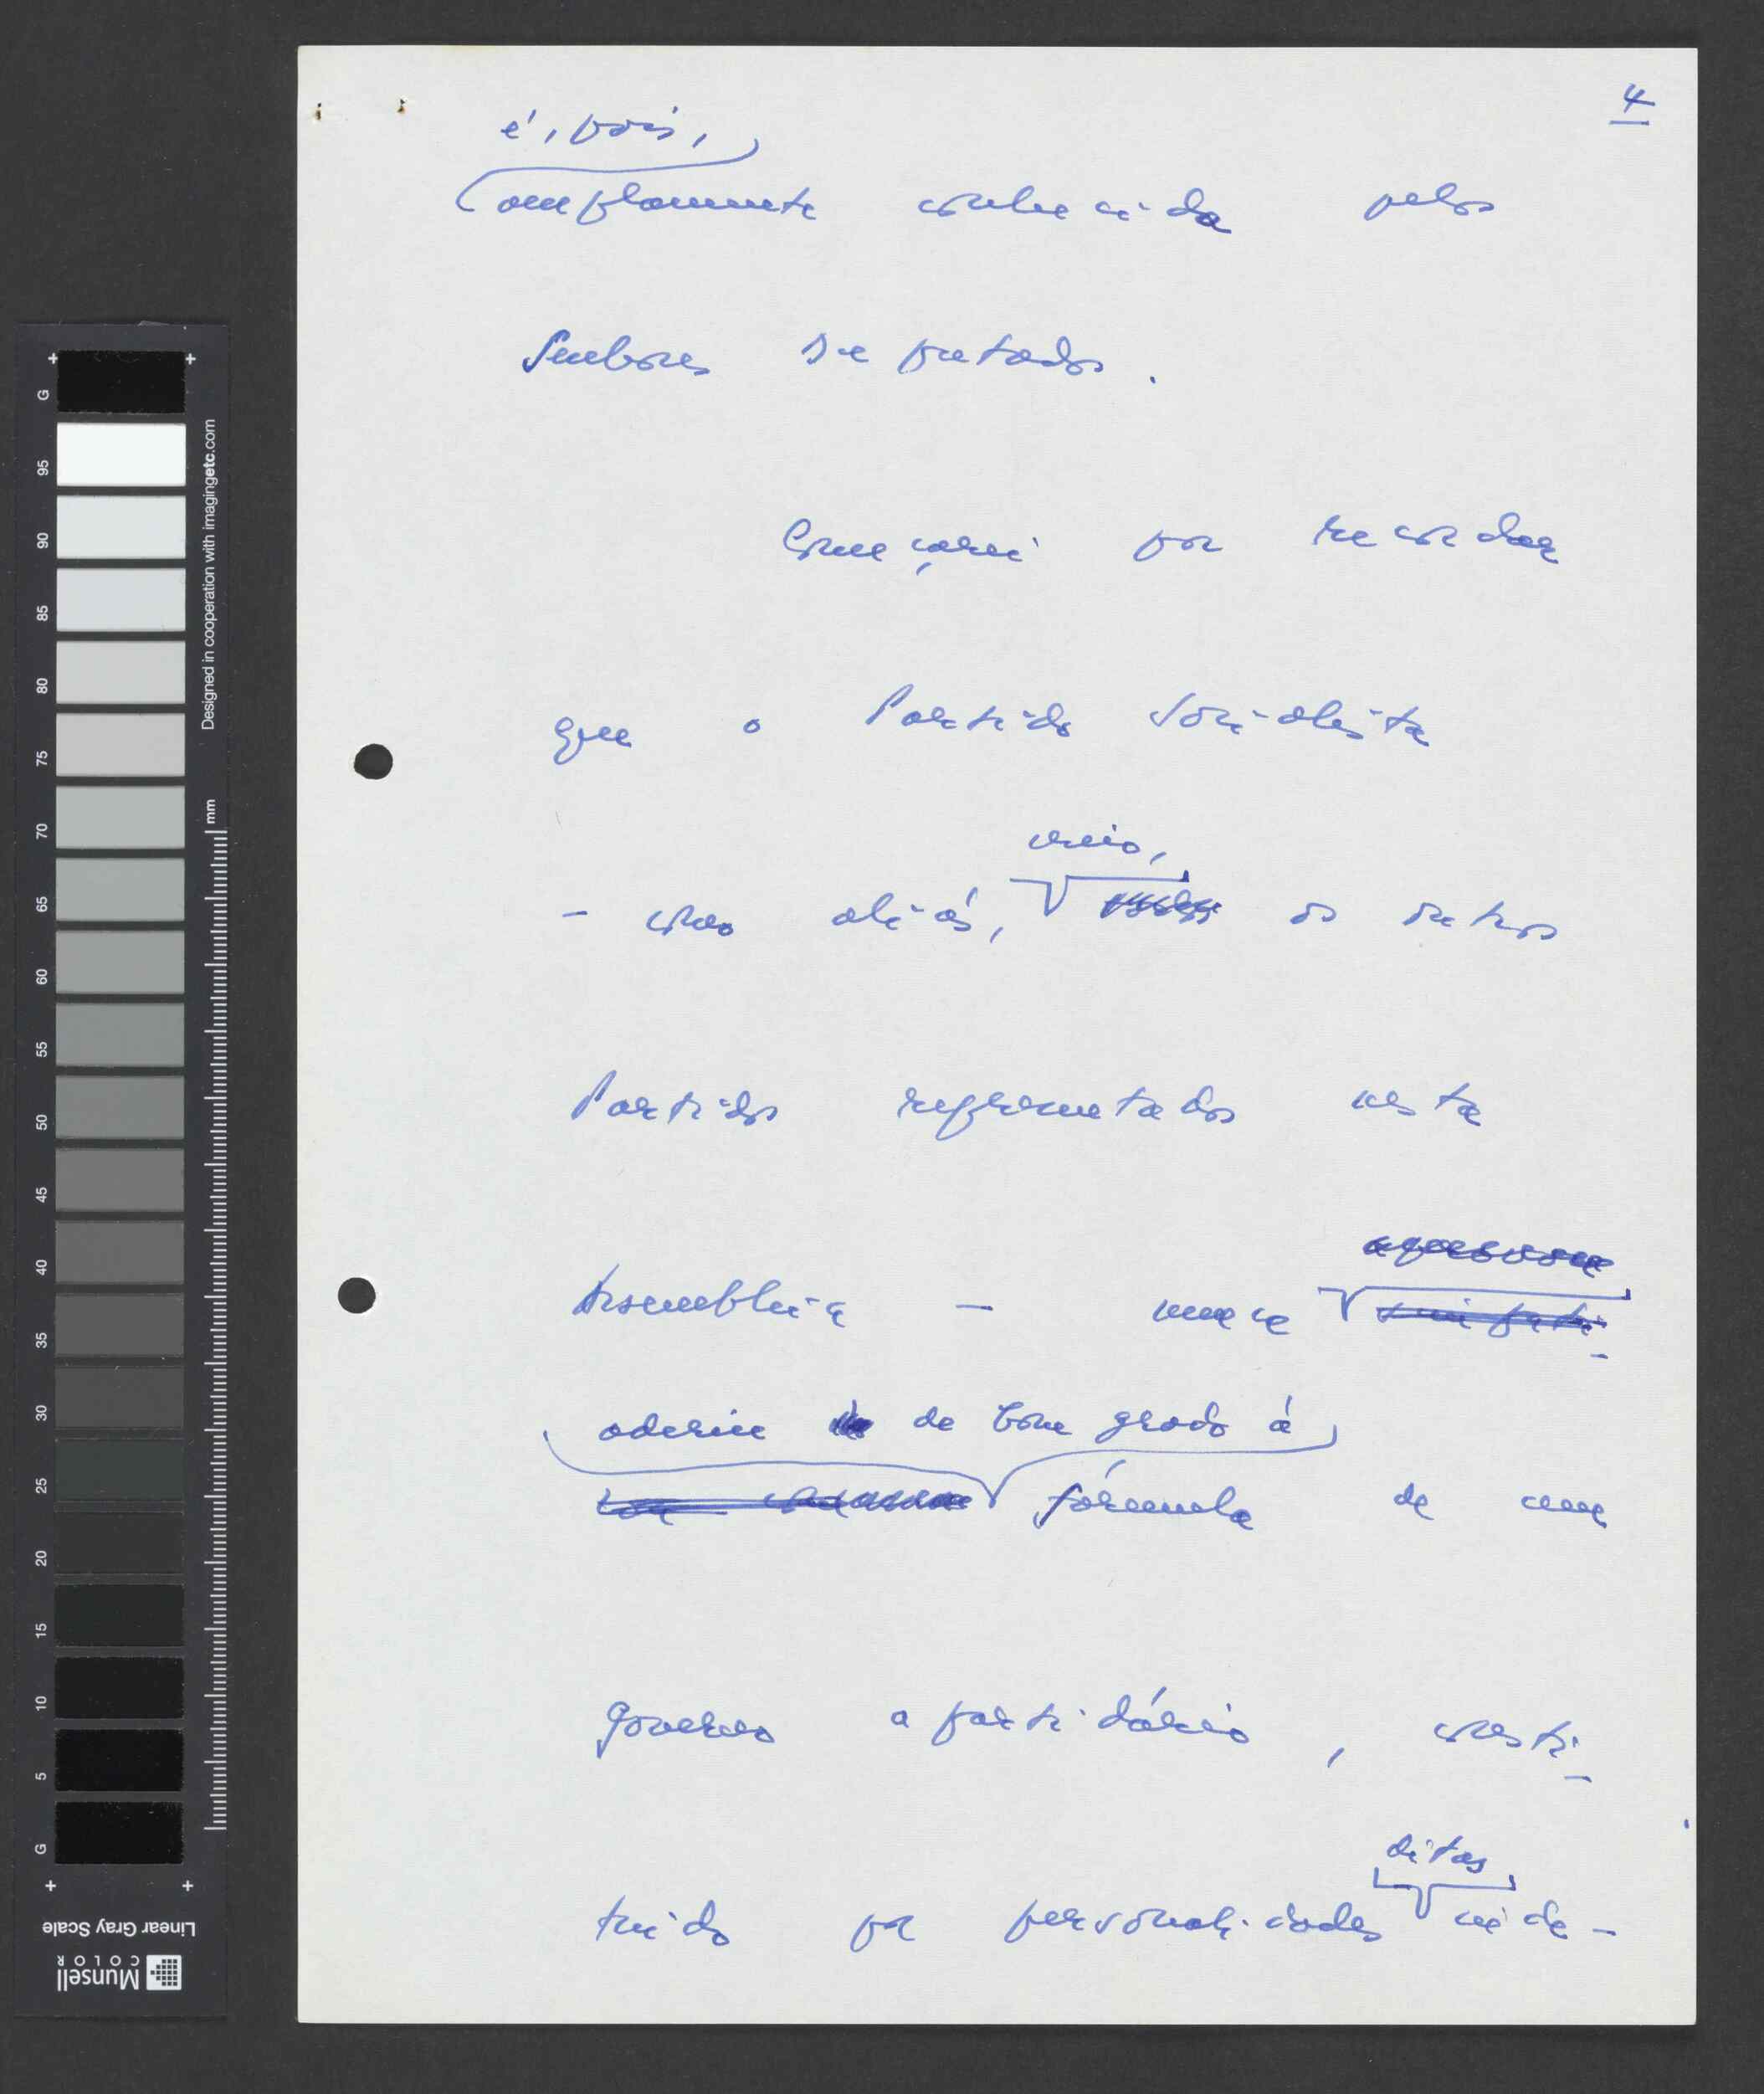 4
é, pois,
amplamente conhecida pelos
Senhores Deputados.
Começarei por recordar
que o Partido Socialista
creio,
- como aliás, os outros
Partidos representados nesta
Assembleia - nunca
aderiu de bom grado à
fórmula de um
governo apartidário, consti-
ditas
tuído por personalidades inde-
G
95
90
85
80
75
70
65
60
55
50
45
40
35
30
25
20
15
10
5
G
Designed in cooperation with imagingetc.com
mm
Linear Gray Scale
Munsell
COLOR